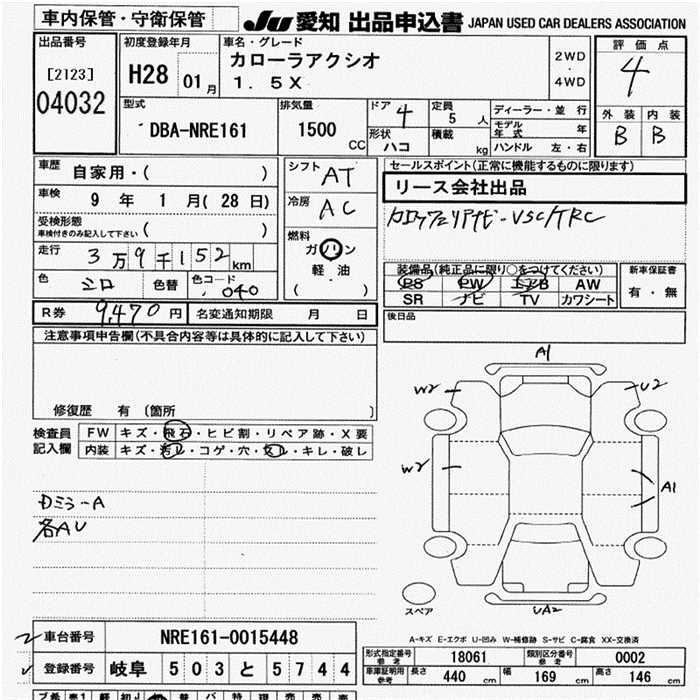 車内保管・守衛保管
JU 愛知 出品申込書 JAPAN USED CAR DEALERS ASSOCIATION
出品番号
[2123]
04032
初度登録年月
H28 01月
車名・グレード
カローラアクシオ
1.5X
2WD
・
4WD
評価点
4
外装 内装
B B
型式
DBA-NRE161
排気量
1500
CC
ドア 4
形状 ハコ
定員 5 人
積載 kg
ディーラー・並行
モデル年式 年
ハンドル 左・右
車歴 自家用・( )
車検 9年 1月(28日)
受検形態
車検付きのみ記入して下さい ( )
走行 3万9千152km
色 シロ 色替 色コード 040
シフト AT
冷房 AC
燃料
ガソリン
軽油
( )
セールスポイント(正常に機能するものに限ります)
リース会社出品
VSC/TRC
装備品(純正品に限り○をつけてください)
PS PW エアB AW
SR ナビ TV カワシート
新車保証書
有・無
後日品
R券 9,470円 名変通知期限 月 日
注意事項申告欄(不具合内容等は具体的に記入して下さい)
修復歴 有 〔箇所 〕
検査員記入欄
FW キズ・飛石・ヒビ割・リペア跡・X要
内装 キズ・汚レ・コゲ・穴・スレ・キレ・破レ
各AU
A1
W2
U2
W2
A1
UA2
スペア
A-キズ E-エクボ U-凹み W-補修跡 S-サビ C-腐食 XX-交換済
車台番号 NRE161-0015448
登録番号 岐阜 503 と 5744
型式指定番号 参考 18061
類別区分番号 参考 0002
車庫証明用 参考 長さ 440 cm 幅 169 cm 高さ 146 cm